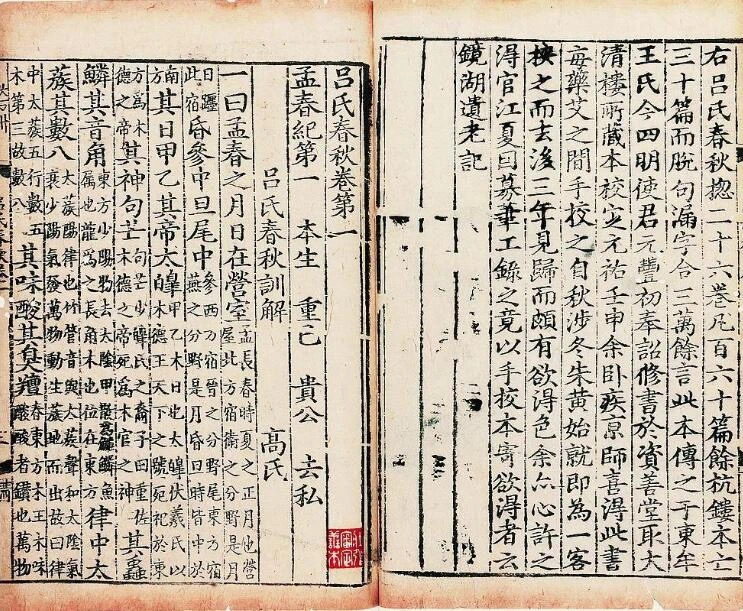 右吕氏春秋揔二十六巻凡百六十篇餘杭鏤本亡
三十篇而脫句漏字合三萬餘言此本傳之于東牟
王氏今四明使君元豐初奉詔修書於資善堂取大
清樓所藏本校定元祐壬申余卧疾京師喜得此書
每藥艾之間手校之自秋涉冬朱黄始就即為一客
挾之而去後三年見歸而頗有欲得色余亦心許之
得官江夏因募筆工錄之竟以手校本寄欲得者云
鏡湖遺老記
吕氏春秋卷第一
孟春紀第一 本生 重己 貴公 去私
吕氏春秋訓解 高氏
一曰孟春之月日在營室孟長春時夏之正月也營室北方宿衛之分野是月
日躔此宿昏參中旦尾中參西方宿晉之分野尾東方宿燕之分野是月昏旦時皆中於
南方其日甲乙其帝太皞甲乙木日也太皞伏羲氏以木德王天下之號死祀於東
方為木德之帝其神句芒句芒少皞氏之裔子曰重佐木德之帝死爲木官之神其蟲
鱗其音角東方少陽物去太陰甲散爲鱗鱗魚屬也龍爲之長角木也位在東方律中太
蔟其數八太蔟陽律也竹管音與太蔟聲和太陰氣衰少陽氣發萬物動生蔟地而出故曰律
中太蔟五行數五木第三故數八其味酸其臭羶春東方木王木味酸酸者鑽也萬物